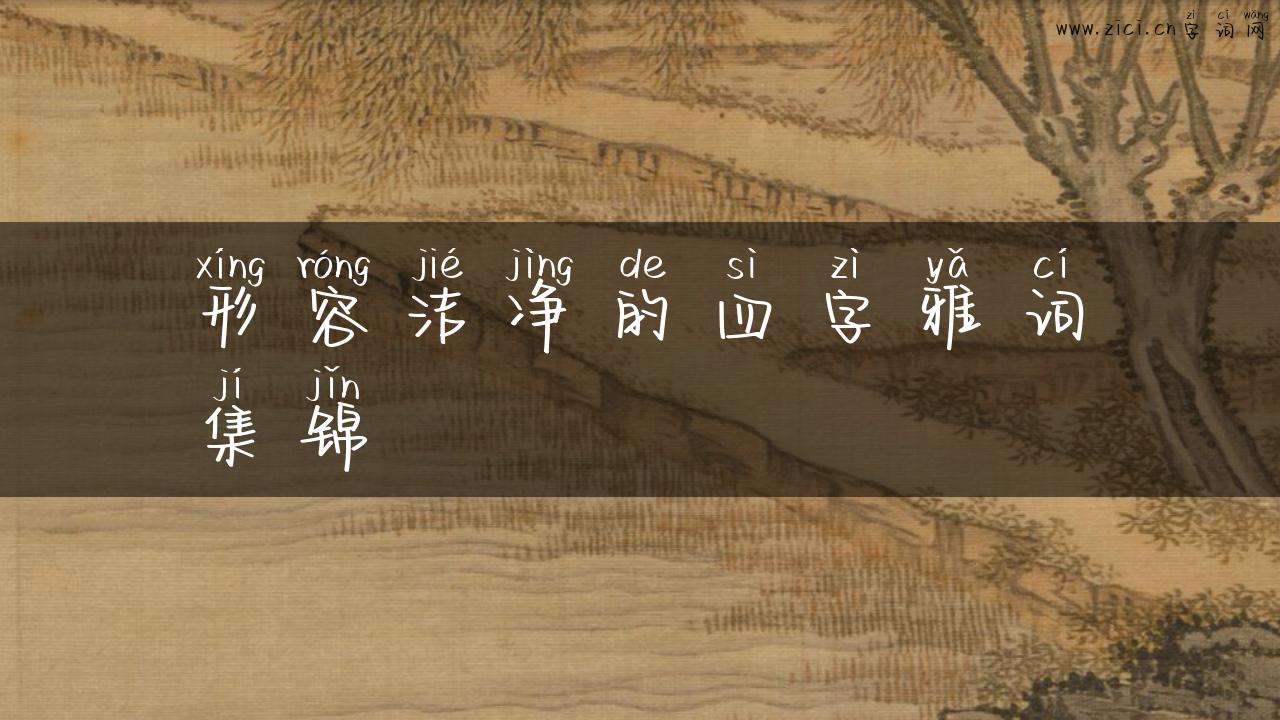 zì cí wǎng
www.zici.cn字词网
xíng róng jié jìng de sì zì yǎ cí
形容洁净的四字雅词
jí jǐn
集锦